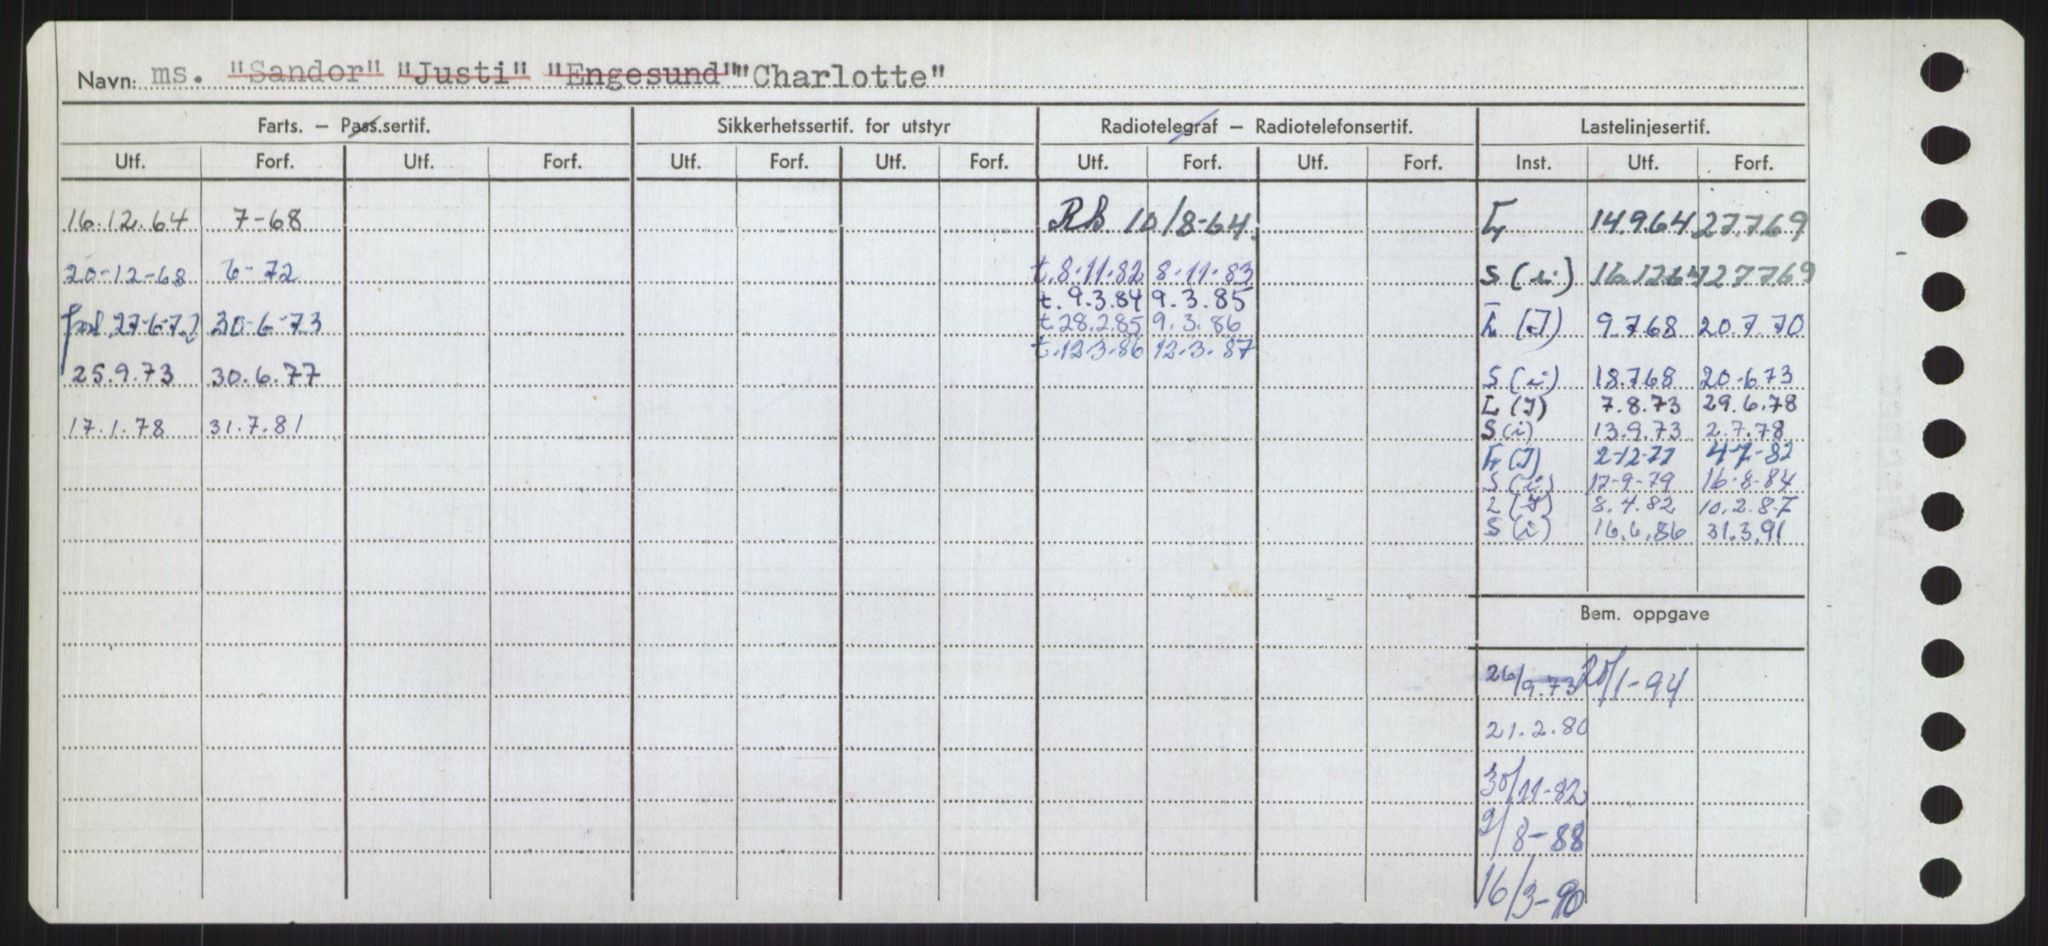 Navn: ms. "Sandor" "Justi" "Engesund" "Charlotte"
Farts. – Pass.sertif. Sikkerhetssertif. for utstyr Radiotelegraf – Radiotelefonsertif. Lastelinjesertif.
Utf. Forf. Utf. Forf. Utf. Forf. Utf. Forf. Utf. Forf. Utf. Forf. Inst. Utf. Forf.
16.12.64 7-68 10/8-64. 14.9.64 27.7.69
20-12-68 6-72 t.8.11.82 8.11.83 S(i) 27769
t.9.3.84 9.3.85
27-6-72 30-6-73 t.28.2.85 9.3.86 L(I) 9.7.68 20.7.70
t.12.3.86 12.3.87
25.9.73 30.6.77 S(i) 18.7.68 20.6.73
L(I) 7.8.73 29.6.78
17.1.78 31.7.81 S(i) 13.9.73 2.7.78
L(I) 2-12-77 4-7-82
S(i) 17-9-79 16-8-84
L(I) 8.4.82 10.2.87
S(i) 16.6.86 31.3.91
Bem. oppgave
26/9.73 /1-94
21.2.80
30/11-82
9/8-88
16/3-90